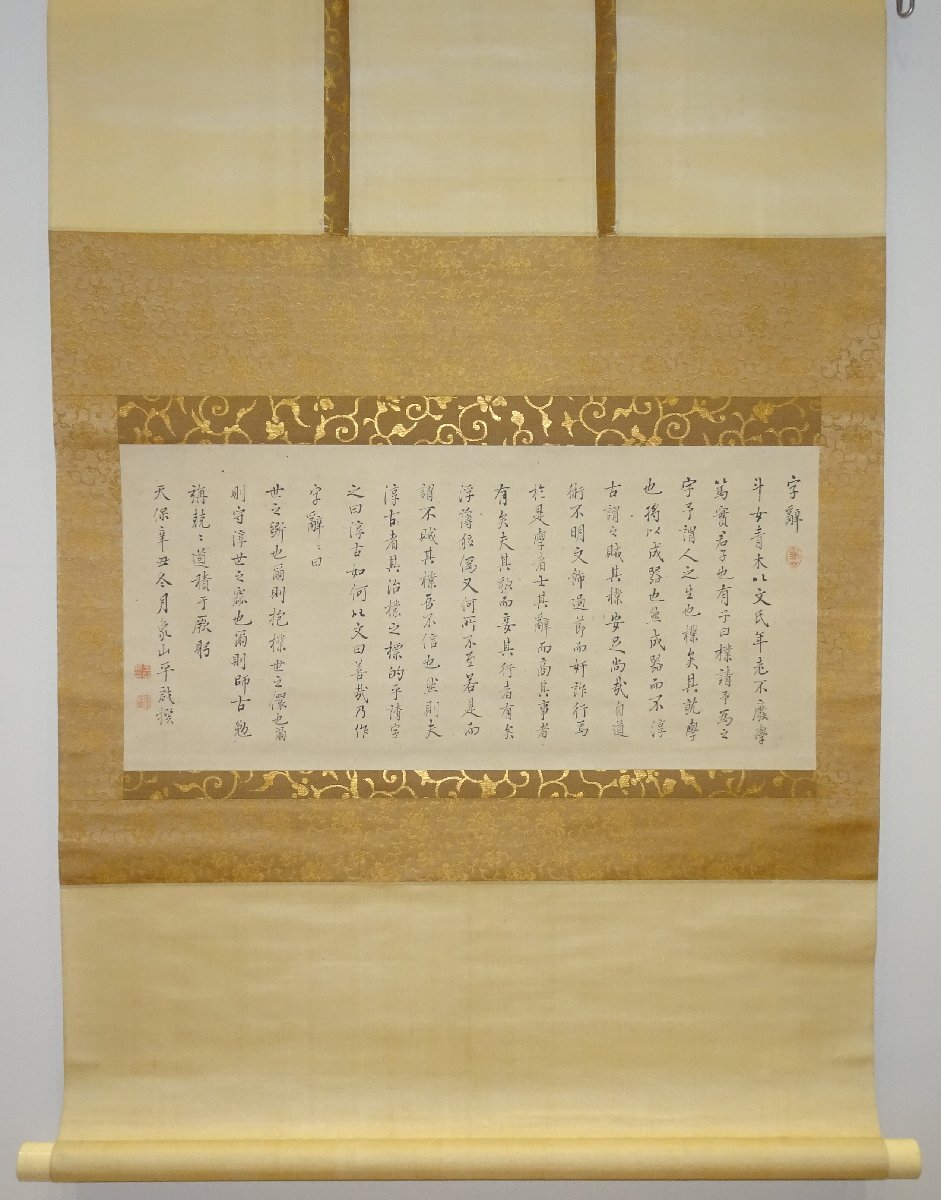 字辭
斗女青木以文氏年老不廢學
篤實君子也有子曰樸請予為之
字予謂人之生也樸矣其就學
也將以成器也然成器而不淳
古謂之賊其樸安足尚哉自道
術不明文飾過節而奸詐行焉
於是學者士其辭而高其事者
有矣夫其頭而妄其行者有矣
浮薄輕偽又何所不至若是而
謂不賊其樸吾不信也然則夫
淳古者其治樸之標的乎請字
之曰淳古如何以文曰善哉乃作
字辭〻曰
世之斲也爾則抱樸世之儇也爾
則守淳世之窳也爾則師古勉
旃兢〻道積于厥躬
天保辛丑冬月象山平啟撰